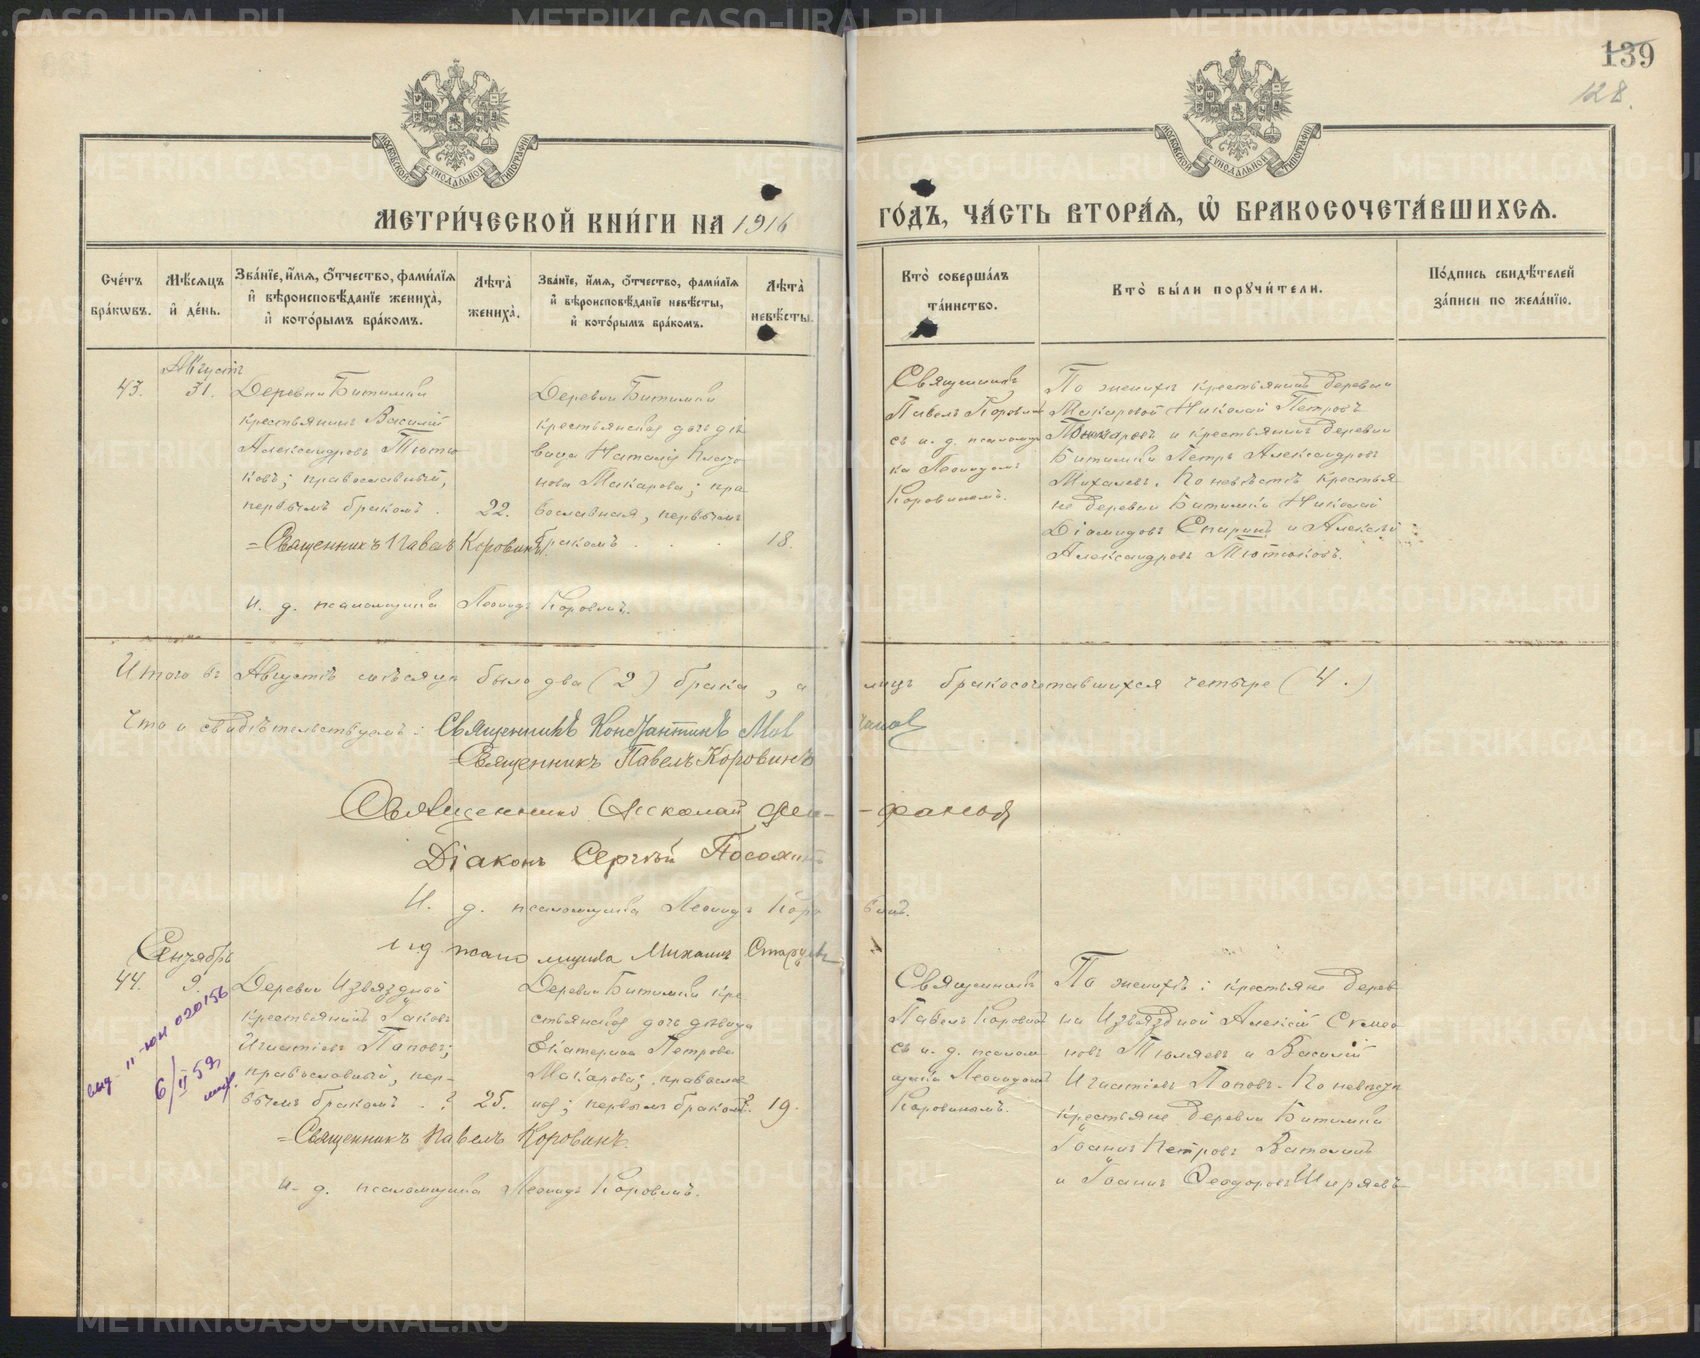 139
128.
МОСКОВСКОЙ СУНОДАЛЬНОЙ ТИПОГРАФIИ
МОСКОВСКОЙ СУНОДАЛЬНОЙ ТИПОГРАФIИ
МЕТРИ́ЧЕСКОЙ КНИ́ГИ НА 1916 ГО́ДЪ, ЧА́СТЬ ВТОРА́Я, Ѽ БРАКОСОЧЕТА́ВШИХСЯ.
Сче́тъ бра́кѡвъ.
Мѣ́сяцъ и́ де́нь.
Зва́нїе, и́мя, ѻ́тчество, фами́лїя и́ вѣроисповѣ́данїе жениха̀, и́ кото́рымъ бра́комъ.
Лѣта̀ жениха̀.
Зва́нїе, и́мя, ѻ́тчество, фами́лїя и́ вѣроисповѣ́данїе невѣ́сты, и́ кото́рымъ бра́комъ.
Лѣта̀ невѣ́сты.
Кто̀ соверша́лъ та́инство.
Кто̀ бы́ли порꙋчи́тели.
По́дпись свидѣ́телей за́писи по жела́нїю.
Августъ
43.
31.
Деревни Битимки
крестьянинъ Василій
Александровъ Тютю
ковъ; православный,
первымъ бракомъ.
22.
Деревни Битимки
крестьянская дочь дѣ
вица Наталія
нова Макарова; пра
вославная, первымъ
бракомъ
18.
Священникъ
Павелъ Коровинъ
съ и. д. псаломщи
ка Леонидомъ
Коровинымъ.
По женихѣ крестьянинъ деревни
Макаровой Николай Петровъ
и крестьянинъ деревни
Битимки Петръ Александровъ
Михалевъ. По невѣстѣ крестья
не деревни Битимки Николай
Діамидовъ Спиринъ и Алексѣй
Александровъ Тютюковъ.
=Священникъ Павелъ Коровинъ.
И. д. псаломщика Леонидъ Коровинъ.
Итого въ Августѣ мѣсяцѣ было два (2) брака, а лицъ бракосочетавшихся четыре (4.)
Что и свидѣтельствуемъ: Священникъ Константинъ
=Священникъ Павелъ Коровинъ
Священникъ Николай
Діаконъ Сергѣй
И. д. псаломщика Леонидъ Коровинъ.
И д псаломщика Михаилъ
Сентябрь
44.
9.
Деревни Извѣздной
крестьянинъ Іаковъ
Игнатіевъ Поповъ;
православный, пер-
вымъ бракомъ
25.
Деревни Битимки кре
стьянская дочь дѣвица
Екатерина Петрова
Макарова; православ
ная; первымъ бракомъ.
19.
Священникъ
Павелъ Коровинъ
съ и. д. псалом
щика Леонидомъ
Коровинымъ.
По женихѣ: крестьяне дерев
ни Извѣздной Алексій Симео
новъ Тюляевъ и Василій
Игнатіевъ Поповъ. По невѣстѣ
крестьяне деревни Битимки
Іоаннъ Петровъ Ватолинъ
и Іоаннъ Ѳеодоровъ Ширяевъ
=Священникъ Павелъ Коровинъ.
И. д. псаломщика Леонидъ Коровинъ.
выд. II-ЮН 020156
6/II 59г